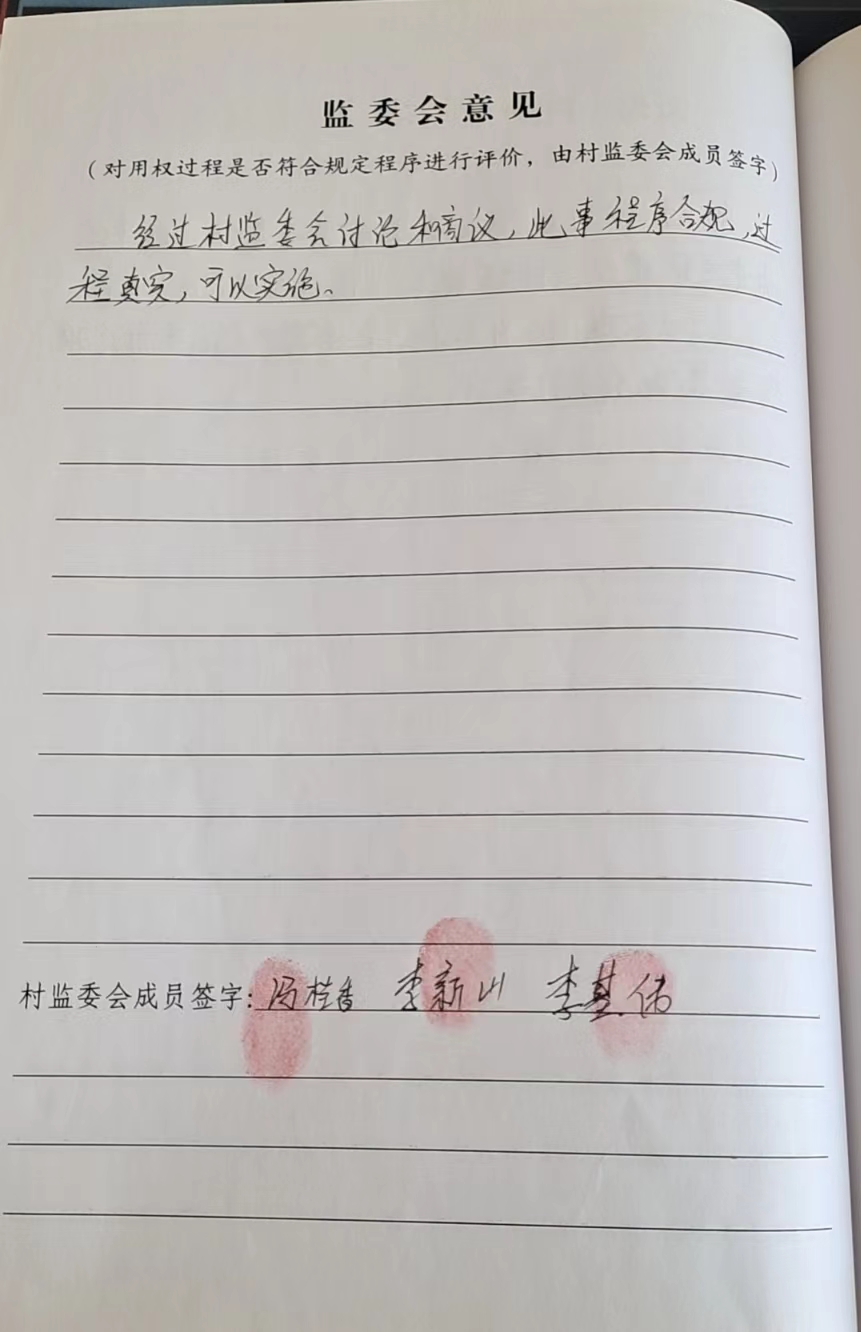 监委会意见
（对用权过程是否符合规定程序进行评价，由村监委会成员签字）
经过村监委会讨论和商议，此事程序合规，过
程真实，可以实施。
村监委会成员签字：冯桂香 李新山 李其伟